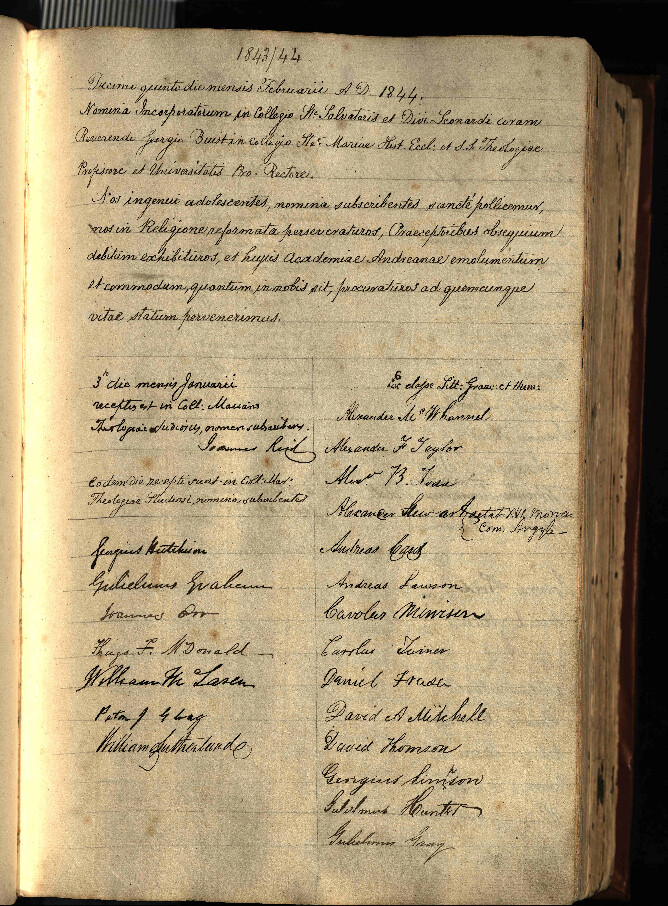 1843/44
Decimo quinto die mensis Februarii A.D. 1844.
Nomina Incorporatorum in Collegio Sti Salvatoris et Divi Leonardi coram
Reverendo Georgio Buist in Collegio Stae Mariae Hist. Eccl: et S.S. Theologiae
Professore et Universitatis Pro-Rectore.
Nos ingenui adolescentes, nomina subscribentes sancté pollicemur,
nos in Religione reformata perseveraturos, Praeceptoribus obsequium
debitum exhibituros, et hujus Academiae Andreanae emolumentum
et commodum, quantum in nobis sit, procuraturos ad quemcunque
vitae statum pervenerimus.
3o die mensis Januarii
receptus est in Coll: Mariano
Theologiae studiosus, nomen subscribens.
Joannes Reid
Eodem die recepti sunt in Coll: Mar:
Theologiae Studiosi, nomina subscribentes
Georgius Hutchison
Gulielmus Graham
Joannes Orr
F. McDonald
William
Peter J
William Sutherland
classe Litt: Graec: et Hum:
Alexander McWhannel
Alexander F Taylor
B.
Alexander Stewart
Com. Argyle
Andreas Card
Andreas Lawson
Carolus
Carolus Turner
Daniel Fraser
David A Mitchell
David Thomson
Georgius Simpson
Gulielmus Hunter
Gulielmus Gray